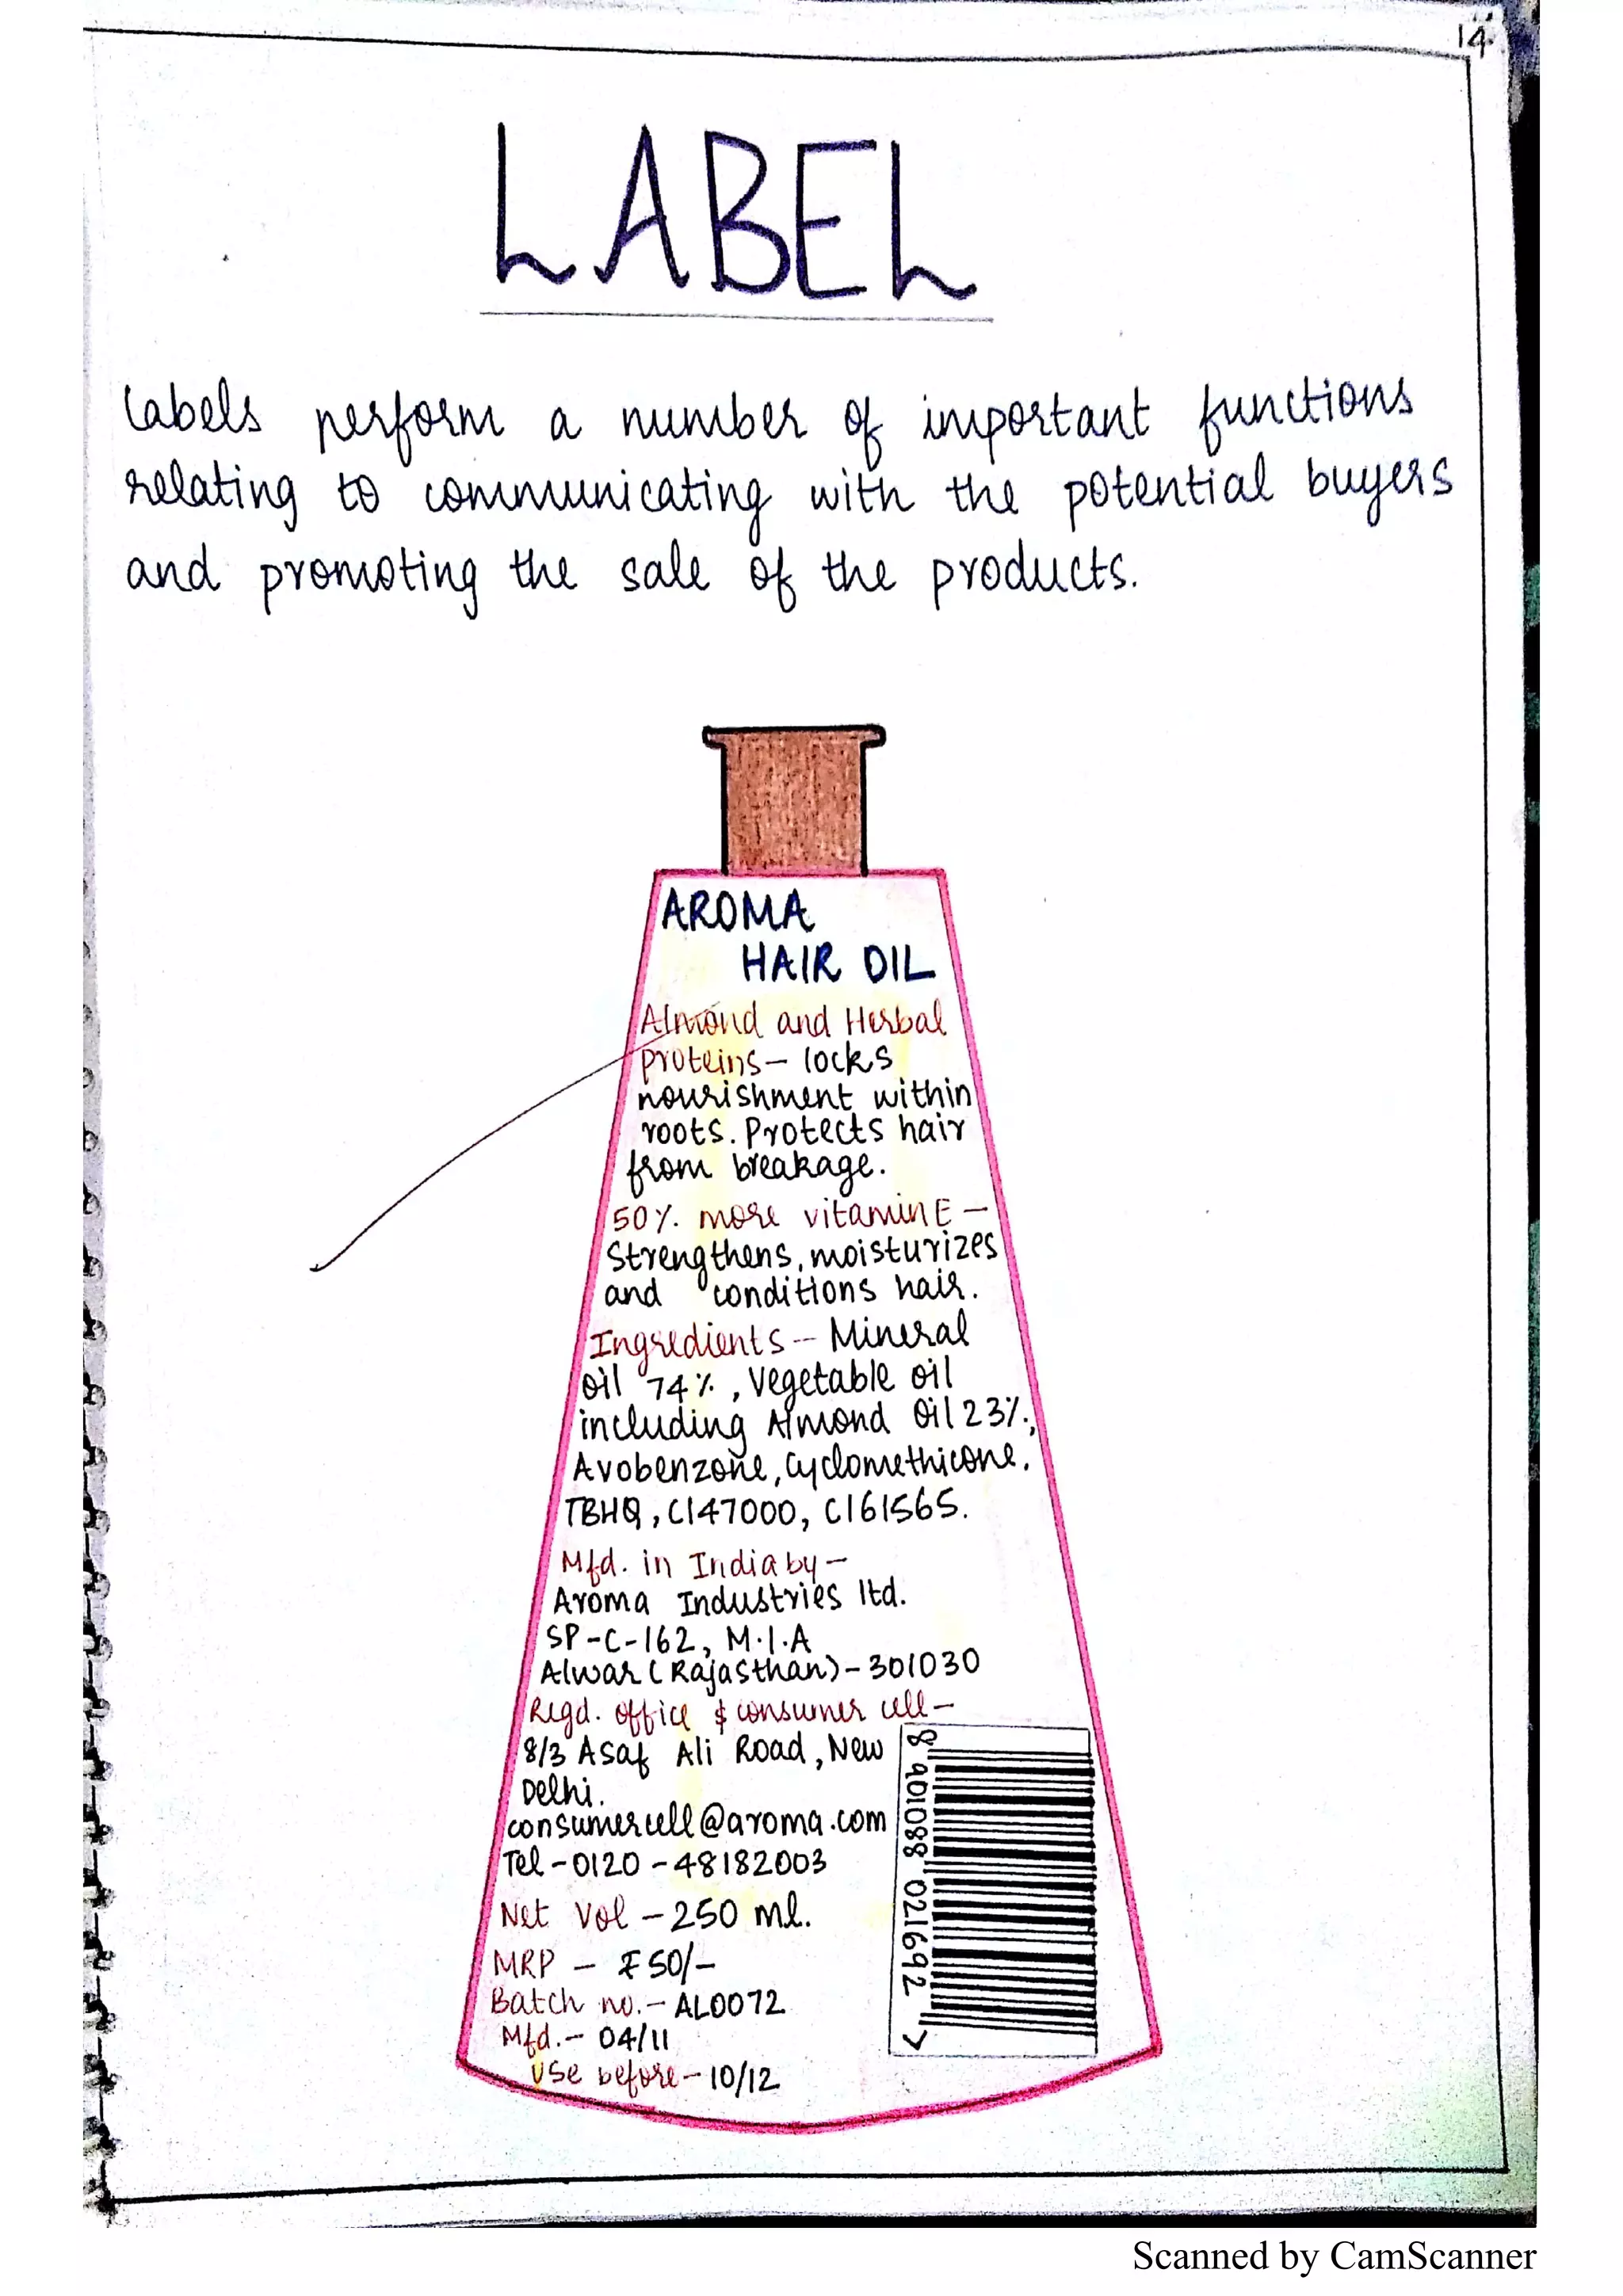 14.
LABEL
Labels perform a number of important functions
relating to communicating with the potential buyers
and promoting the sale of the products.
AROMA
HAIR OIL
Almond and Herbal
proteins- locks
nourishment within
roots. Protects hair
from breakage.
50% more vitamin E -
Strengthens, moisturizes
and conditions hair.
Ingredients -- Mineral
oil 74%, Vegetable oil
including Almond Oil 23%,
Avobenzone, Cyclomethicone,
TBHQ, CI47000, CI61565.
Mfd. in India by -
Aroma Industries ltd.
SP-C-162, M.I.A
Alwar (Rajasthan) - 301030
Regd. office & consumer cell -
8/3 Asaf Ali Road, New
Delhi.
consumercell@aroma.com
Tel - 0120 - 48182003
Net Vol - 250 ml.
MRP - ₹50/-
Batch no. - AL0072
Mfd. - 04/11
Use before - 10/12
8 901088 021692 >
Scanned by CamScanner